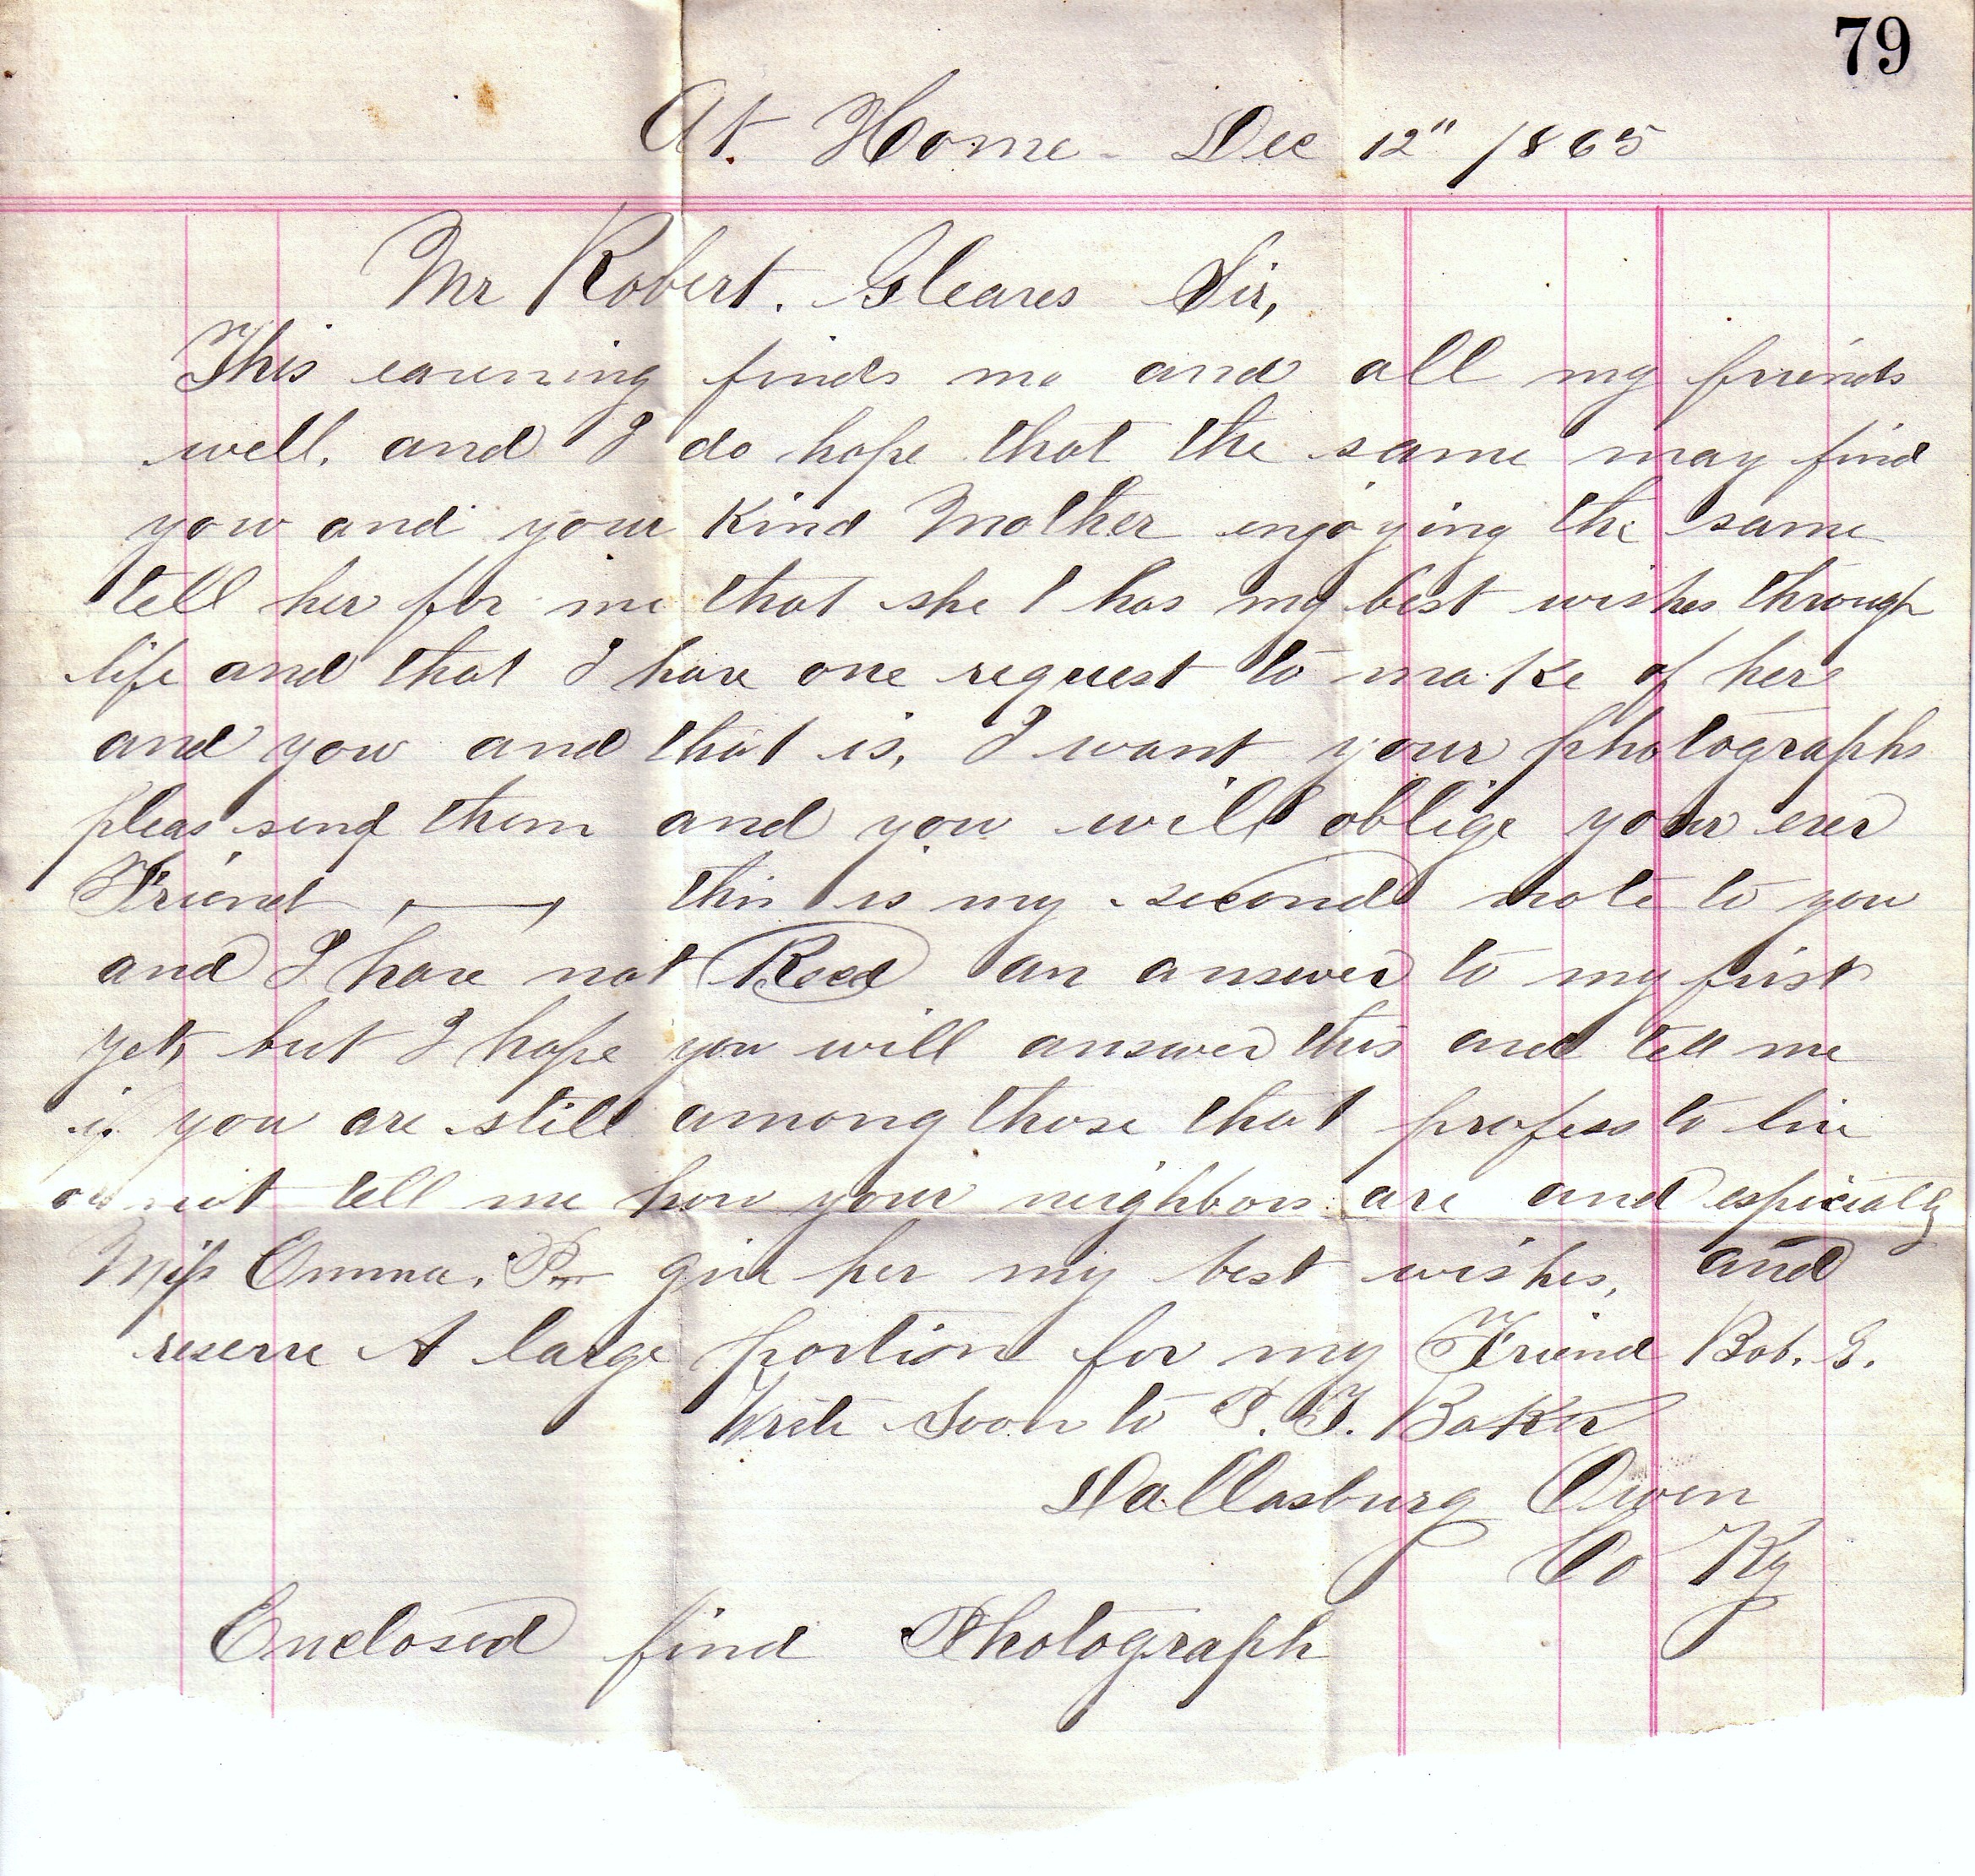 79
At. Home - Dec 12" 1865
Mr Robert. Gleaves Sir,
This eavening finds me and all my friends
well. and I do hope that the same may find
you and your kind Mother enjoying the same
tell her for me that she has my best wishes through
life and that I have one request to make of her
and you and that is, I want your photographs
pleas send them and you will oblige your ever
Friend, this is my second note to you
and I have not Recd an answer to my first
yet, but I hope you will answer this and tell me
if you are still among those that profess to live
or not tell me how your neighbors are and espicially
Miss Emma. P— give her my best wishes, and
reserve A large portion for my Friend Bob. G.
Write Soon to P. T. Baker
Dallasburg Owen
Co Ky
Enclosed find Photograph